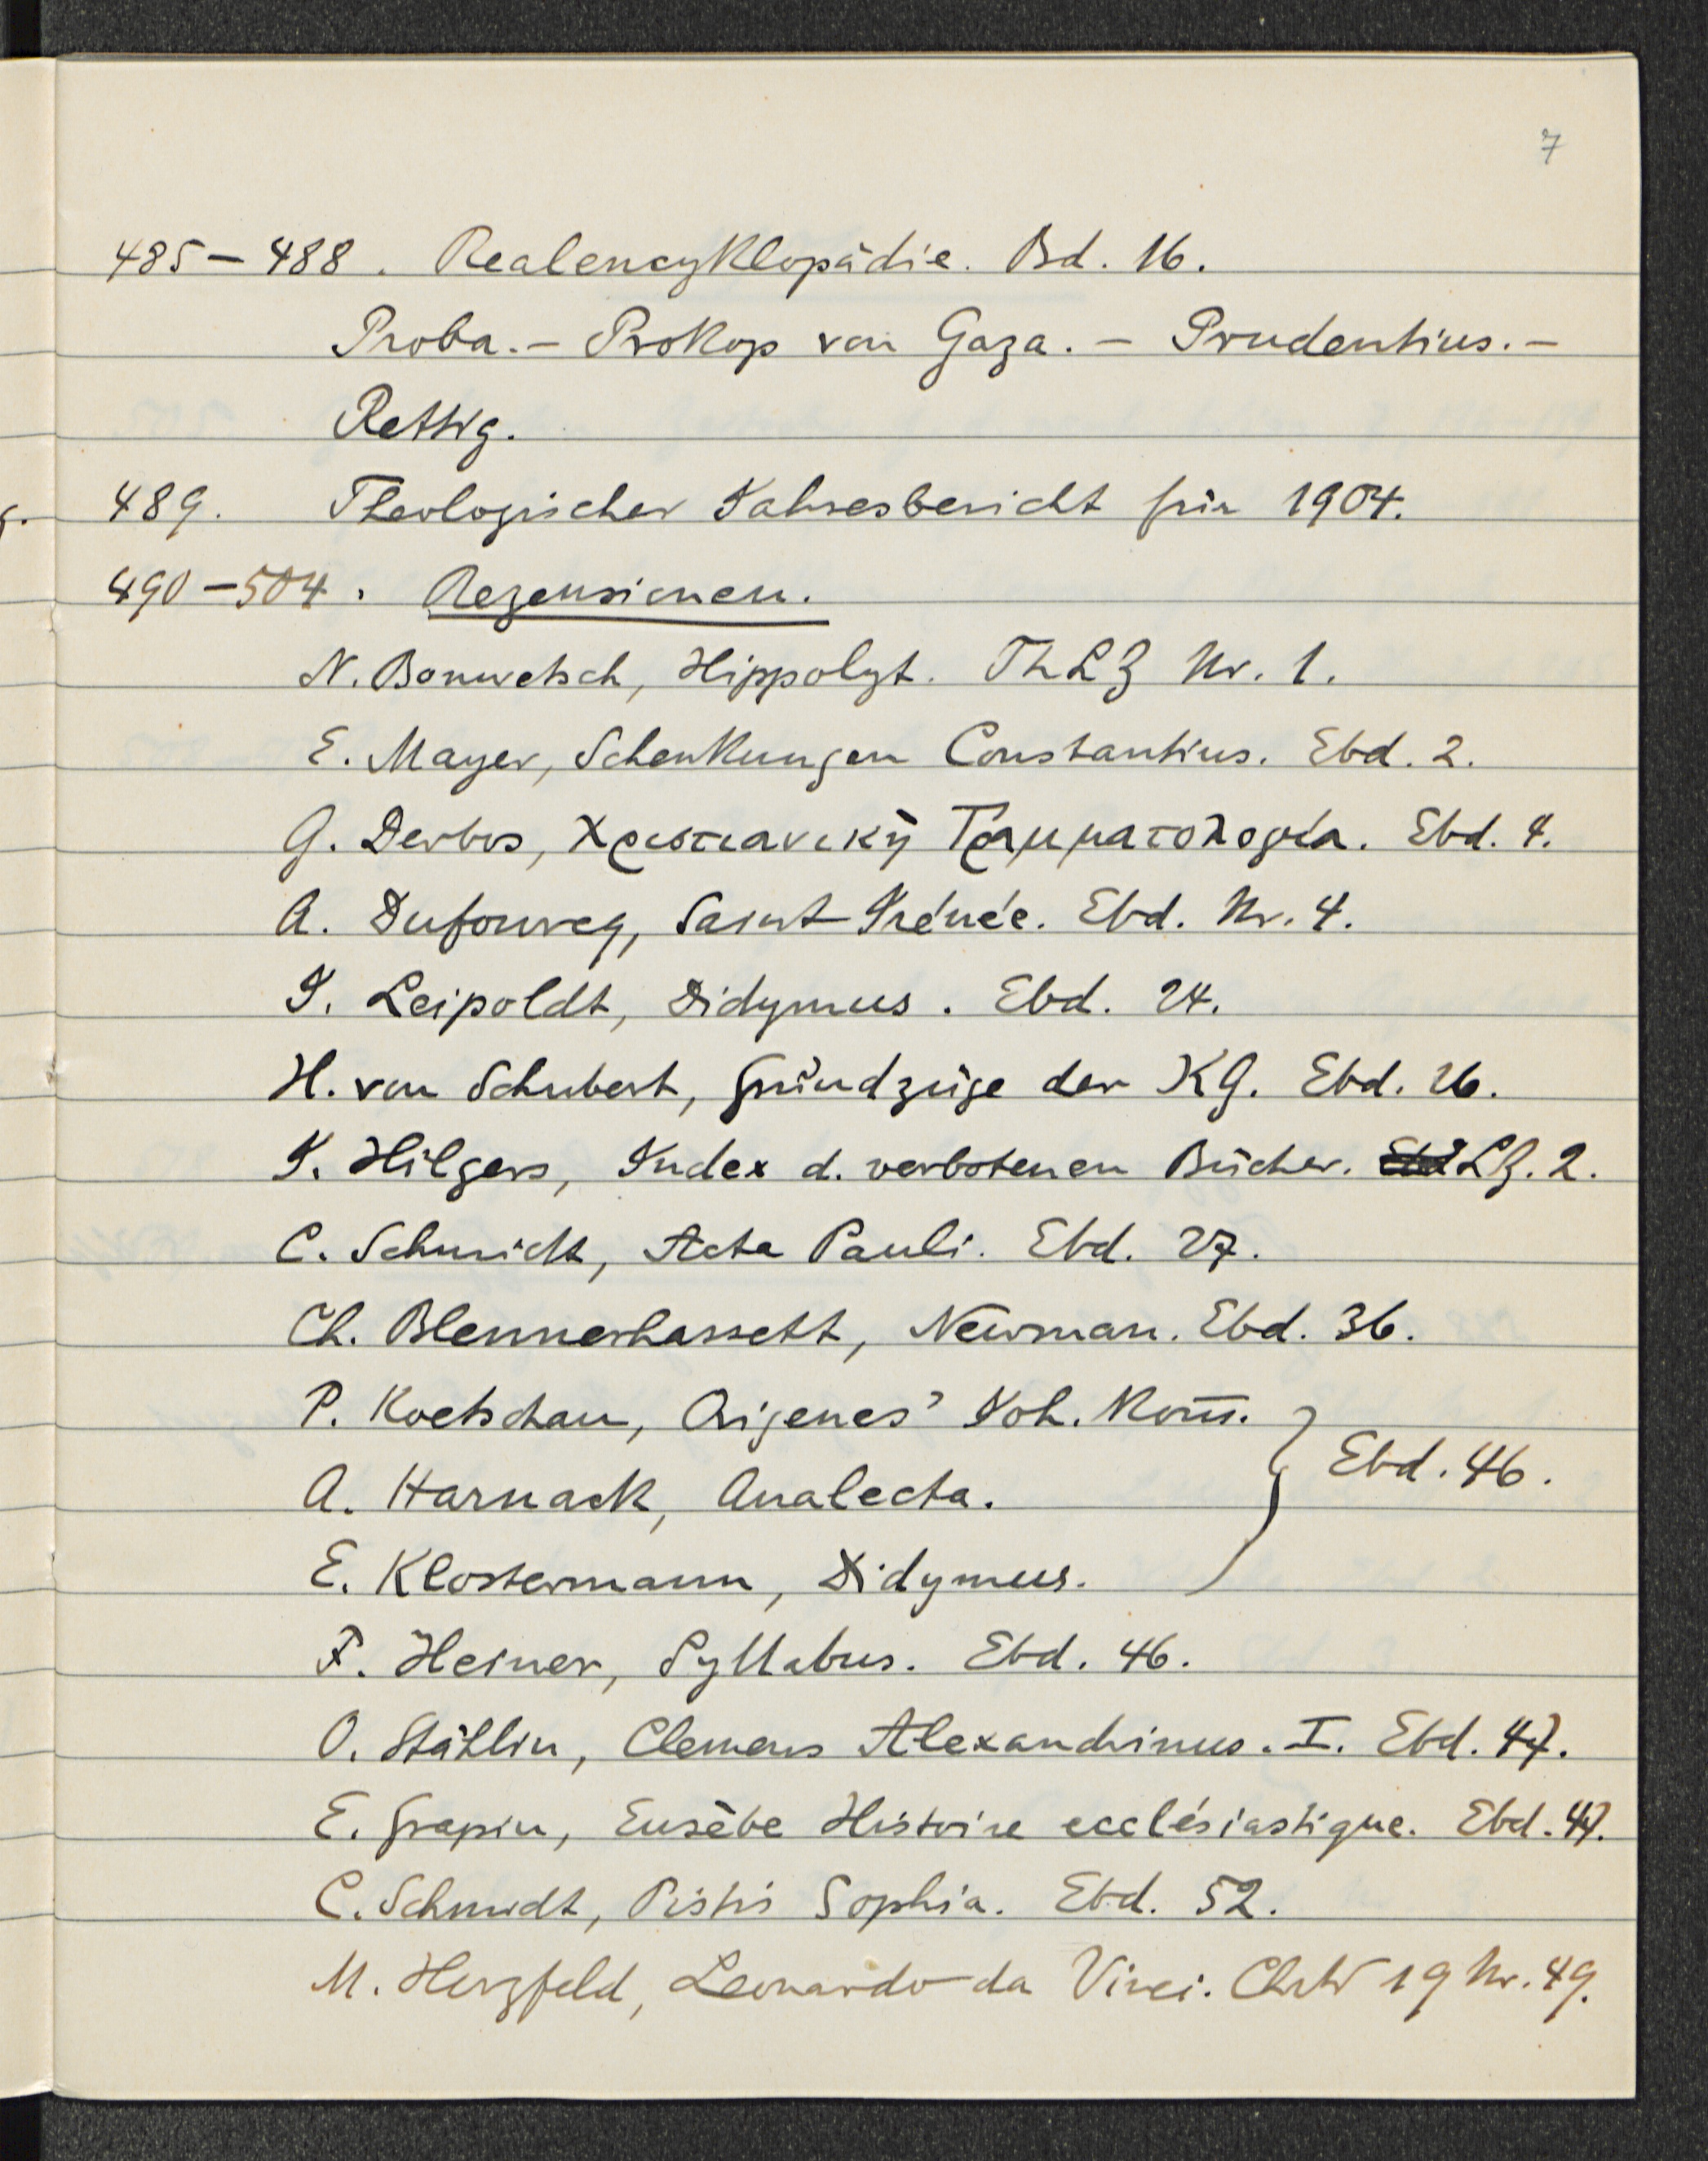 7
485 – 488 . Realencyklopädie. Bd. 16.
Proba. – Prokop von Gaza. – Prudentius. –
Rettig.
489. Theologischer Jahresbericht für 1904.
490 – 504 . Rezensionen.
N. Bonwetsch, Hippolyt. ThLZ Nr. 1.
E. Mayer, Schenkungen Constantins. Ebd. 2.
G. Derbos, Χριστιανικὴ Γραμματολογία. Ebd. 4.
A. Dufourcq, Saint Irénée. Ebd. Nr. 4.
J. Leipoldt, Didymus . Ebd. 24.
H. von Schubert, Grundzüge der KG. Ebd. 26.
J. Hilgers, Index d. verbotenen Bücher. Ebd LZ. 2.
C. Schmidt, Acta Pauli. Ebd. 27.
Ch. Blennerhassett, Newman. Ebd. 36.
P. Koetschau, Origenes' Joh. Kom̅.
A. Harnack, Analecta. Ebd. 46.
E. Klostermann, Didymus.
F. Heiner, Syllabus. Ebd. 46.
O. Stählin, Clemens Alexandrinus. I. Ebd. 47.
E. Grapin, Eusèbe Histoire ecclésiastique. Ebd. 47.
C. Schmidt, Pistis Sophia. Ebd. 52.
M. Herzfeld, Leonardo da Vinci. ChrW 19 Nr. 49.